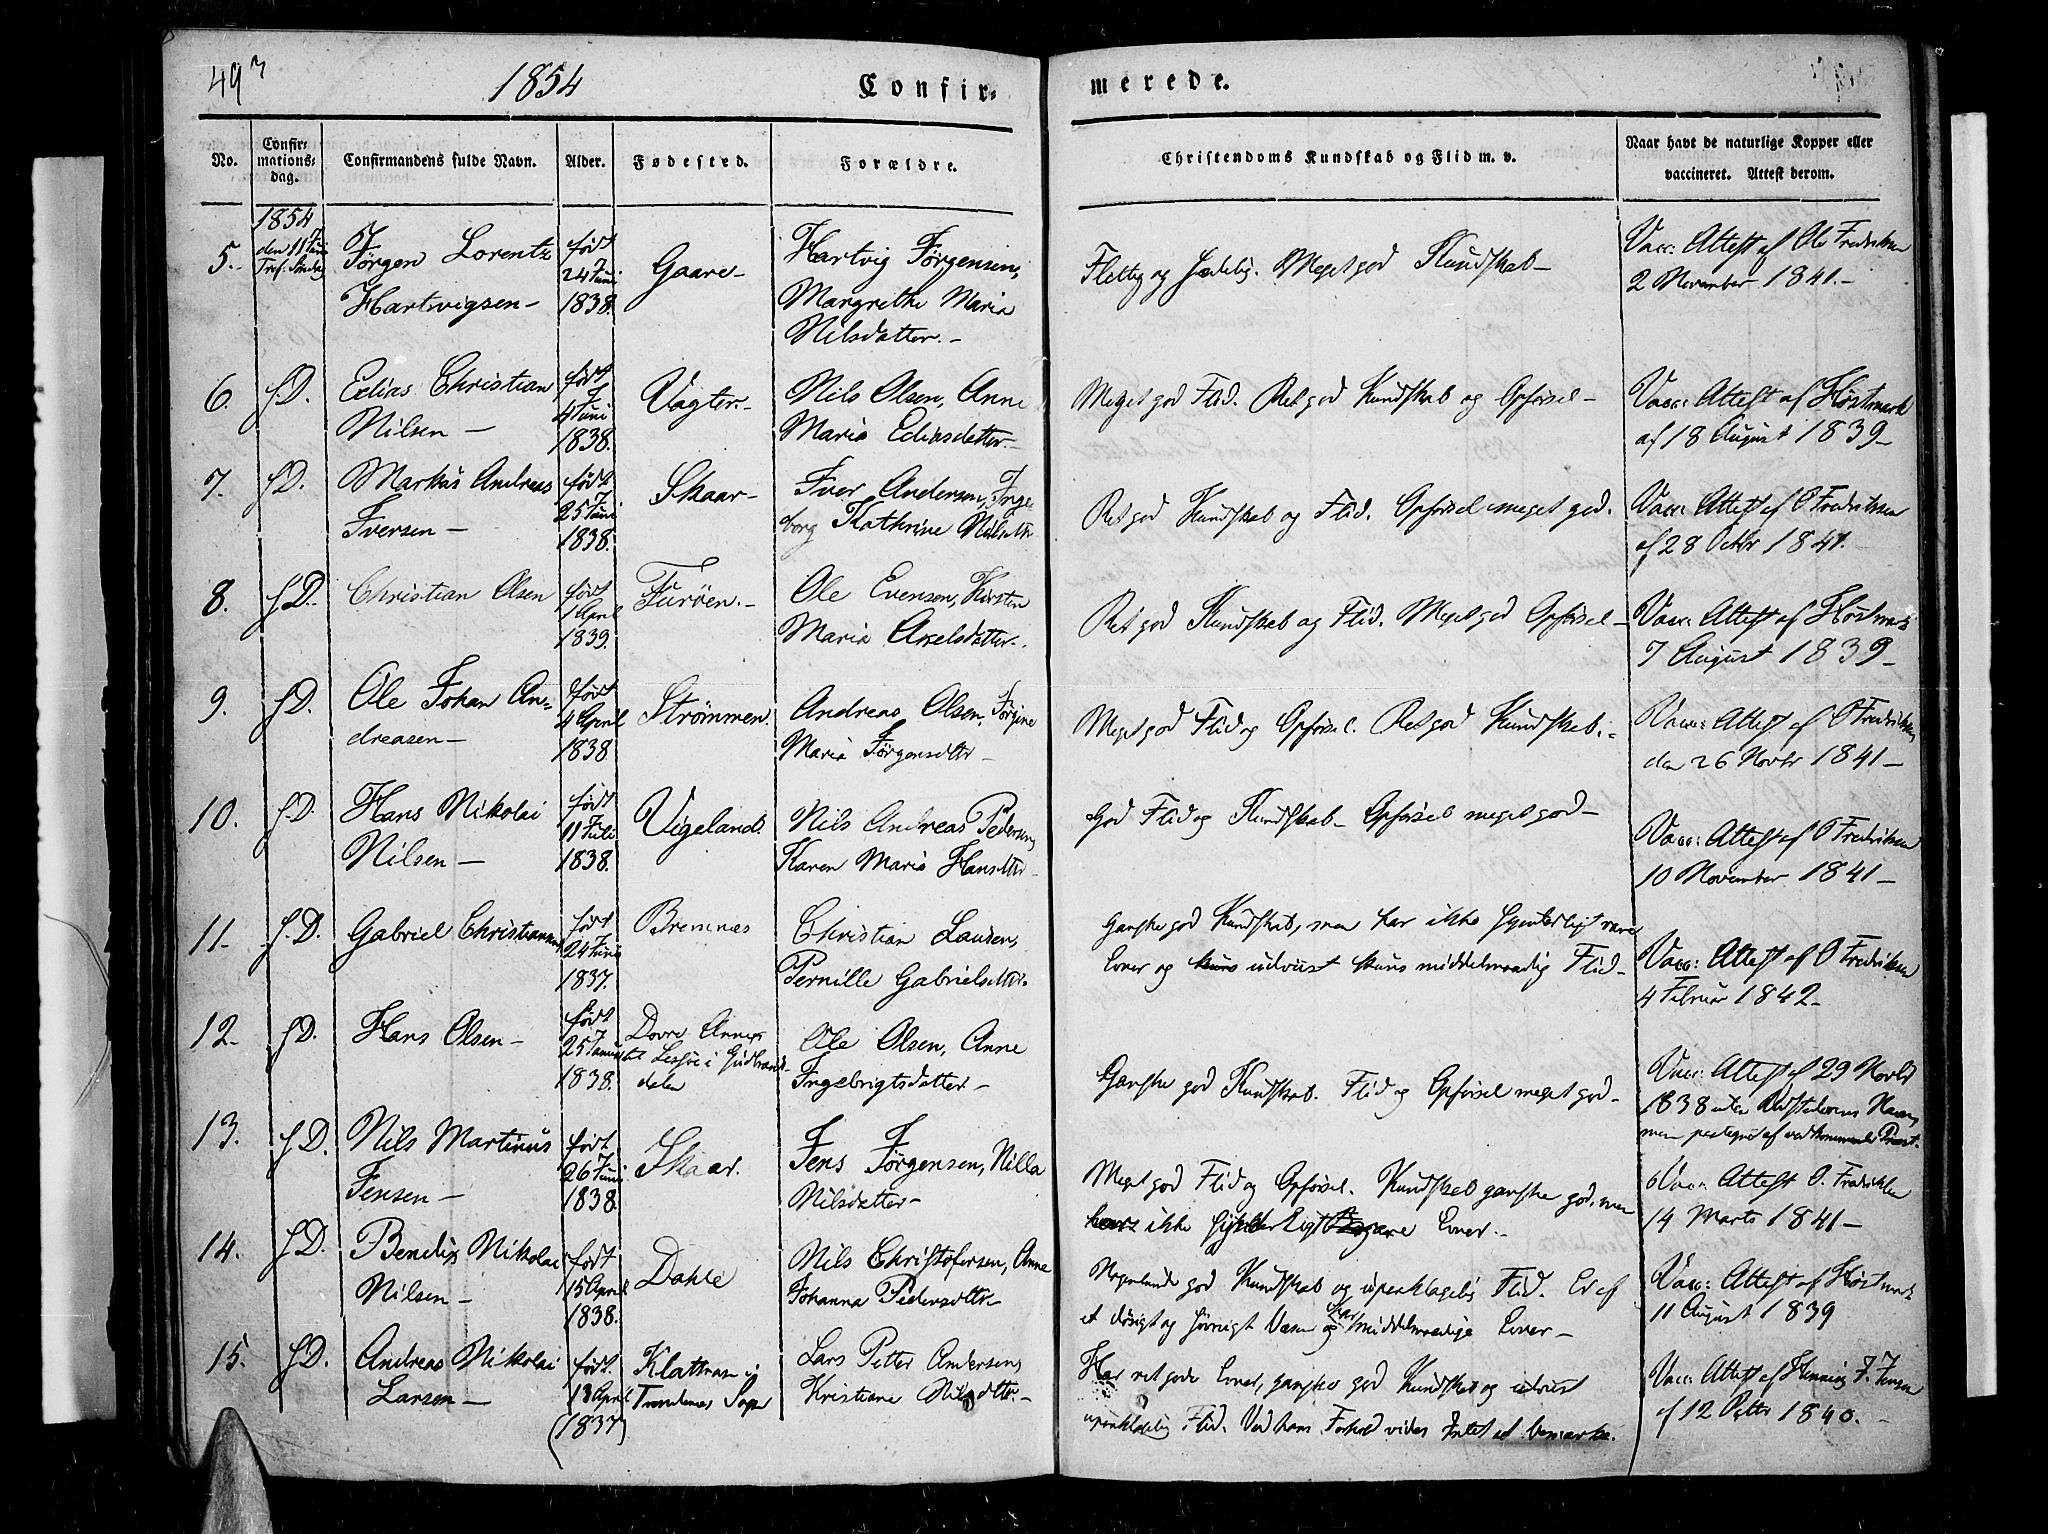 49
1854
Confir-
merede.
No.
Confir-
mations-
dag.
Confirmandens fulde Navn.
Alder.
Fødested.
Forældre.
Christendoms Kundskab og Flid m. v.
Naar havt de naturlige Kopper eller
vaccineret. Attest derom.
1854
den 11 Juni
Tref: Søndag
5.
Jørgen Lorentz
Hartvigsen
født
24 Juni
1838.
Gaare
Hartvig Jørgensen,
Margrethe Maria
Nilsdatter.
Flittig og sædelig. Meget god Kundskab
Vacc: Attest af Ole Fredriksen
2 November 1841.
6. f.D.
Edias Christian
Nilsen
født
4 Juni
1838.
Vagter
Nils Olsen, Anne
Maria Ediasdatter
Meget god Flid. Ret god Kundskab og Opførsel
Vacc: Attest af Høstmark
af 18 August 1839
7. f.D.
Markus Andreas
Iversen
født
25 Juni
1838.
Skaar
Iver Andersen, Inge
borg Kathrine Nilsdtr
Ret god Kundskab og Flid. Opførsel meget god.
Vacc: Attest af O Fredriksen
af 28 Octbr 1841.
8. f.D.
Christian Olsen
født
1 April
1839.
Furøen.
Ole Evensen, Kirsten
Maria Axelsdatter.
Ret god Kundskab og Flid. Meget god Opførsel
Vacc: Attest af Høstmark
7 August 1839
9. f.D.
Ole Johan An-
dreasen
født
4 April
1838
Strømmen.
Andreas Olsen, Jørgine
Maria Jørgensdttr
Meget god Flid og Opførsel. Ret god Kundskab.
Vacc: Attest af O Fredriksen
den 26 Novbr 1841
10. f.D.
Hans Nikolai
Nilsen
født
11 Juli
1838.
Vigeland.
Nils Andreas Pedersen,
Karen Maria Hansdttr
God Flid og Kundskab Opførsel meget god
Vacc: Attest af O Fredriksen
10 November 1841
11. f.D.
Gabriel Christiansen
født
24 Juni
1837.
Bremnæs
Christian Larsen,
Pernille Gabrielsdttr.
Ganske god Kundskab, men har ikke synderligt rare
Evner og udviist kuns middelmaadig Flid
Vacc: Attest af O Fredriksen
4 Februar 1842
12. f.D.
Hans Olsen
født
25
1838.
Dovre Annex
til Lessøe i Gudbrands-
dalen
Ole Olsen, Anne
Ingebrigtsdatter
Ganske god Kundskab. Flid og Opførsel meget god
Vacc: Attest af 29 Novbr
1838 uden Udstederens Navn,
men paategnet af vedkommende Præst.
13. f.D.
Nils Martinus
Jensen
født
26 Juni
1838.
Skaar.
Jens Jørgensen, Nilla
Nilsdatter
Meget god Flid og Opførsel. Kundskab ganske god, men
ikke synderligt Evner.
Vacc: Attest O. Fredriksen
14 Marts 1841
14. f.D.
Bendix Nikolai
Nilsen
født
15 April
1838.
Dahle
Nils Christofersen, Anne
Johanna Pedersdttr
Nogenlunde god Kundskab og upaaklagelig Flid. Er af
et døsigt og søvnigt Væsen og har middelmaadige Evner
Vacc: Attest af Høstmark
11 August 1839
15. f.D.
Andreas Nikolai
Larsen
født
13 April
(1837)
Klattran i
Trondenes Sogn
Lars Petter Andersen,
Kristiane Nilsdttr.
Har ret gode Evner, ganske god Kundskab og udviist
upaaklagelig Flid. Ved hans Forhold vides Intet at bemærke.
Vacc: Attest af Henning J. Jensen
af 12 Octbr 1840.